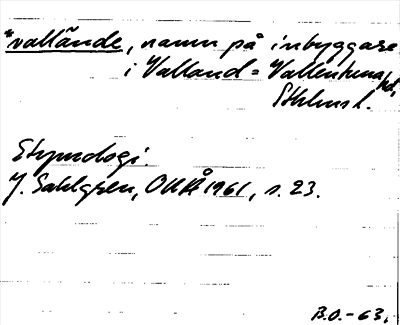 *vallände, namn på inbyggare
i Valland = Vallentuna hd,
Sthlmsl.
Etymologi.
J. Sahlgren, OUÅ 1961, s. 23.
B.O.-63.